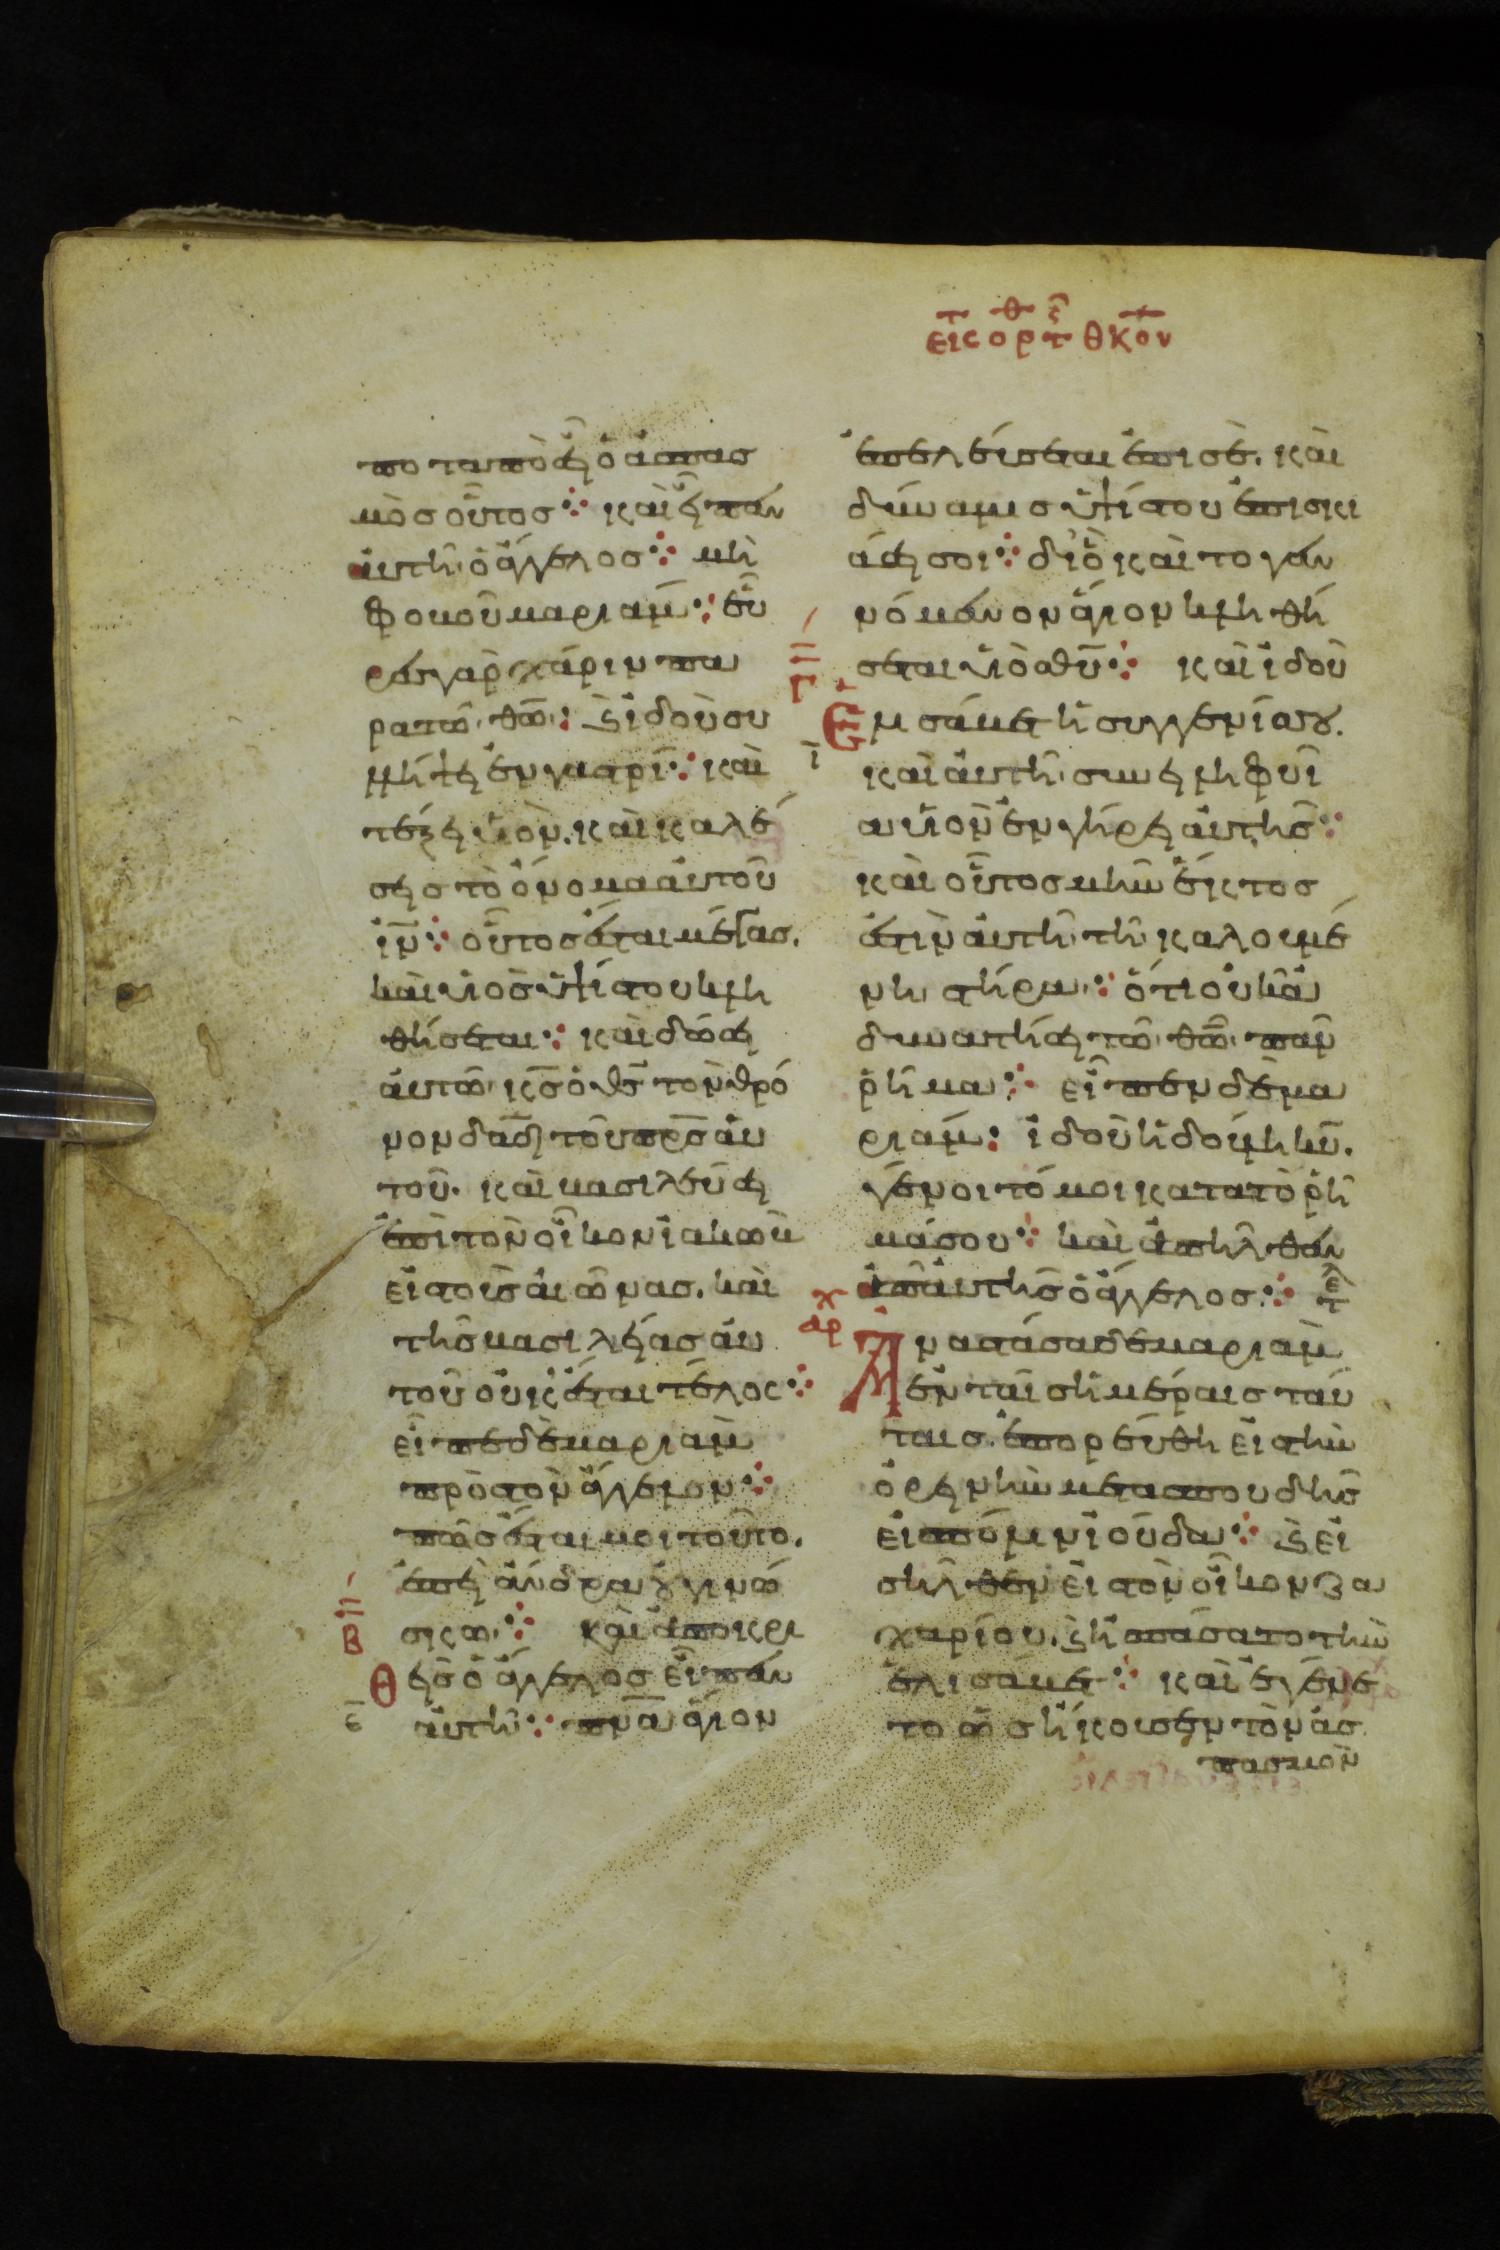 εἰς ὀρτ θκον
ποταπὸς εἴη ὁ ἀσπασ
μὸς οὗτος ⁘ καὶ εἶπεν
αὐτῆ ὁ ἄγγελος ⁘ μὴ
φοβοῦ μαριάμ ⁘ εὗ
ρες γὰρ χάριν πα
ρα τῶ θῶ : ϗ ἰδοὺ συ
λήψη ἐν γαστρὶ ⁘ καὶ
τέξη υἱὸν. καὶ καλέ
σεις τὸ ὄνομα αὐτοῦ
ιν ⁘ οὗτος ἔσται μέγας.
καὶ υἱὸς ὑψίστου κλη
θήσεται ⁘ καὶ δώσει
αὐτῶ κς ὁ θς τὸν θρό
νον δαδ τοῦ πρς αὐ
τοῦ. καὶ βασιλεύσει
ἐπὶ τὸν οἶκον ἰακὼβ
εἰς τοὺς αἰῶνας. καὶ
τῆς βασιλείας αὐ
τοῦ οὐκ ἔσται τέλος ⁘
εἶπε δὲ μαριὰμ
πρὸς τὸν ἄγγελον ⁘
πῶς ἔσται μοι τοῦτο.
ἐπεὶ ἄνδρα οὐ γινώ
σκω ⁘ καὶ ἀποκρι
Β
θεὶς ὁ ἄγγελος εἶπεν
αὐτῆ ⁘ πνα ἅγιον
ἐπελεύσεται ἐπὶ σέ. καὶ
δύναμις ὑψίστου ἐπισκι
άσει σοι ⁘ διὸ καὶ το γεν
νόμενον ἅγιον κληθή
σεται υἱὸς θυ ⁘ καὶ ἰδοὺ
Γ
ἐλισάβετ ἡ συγγενίσου.
ι
καὶ αὐτὴ συνειληφυῖ
α υἱὸν ἐν γήρει αὐτῆς ⁘
καὶ οὗτος μὴν ἕκτος
ἐστὶν αὐτῆ τῆ καλουμέ
νη στήρα ⁘ ὅτι οὐκ ἀ
δυνατήσει τῶ θῶ πᾶν
ῥῆμα ⁘ εἶπεν δὲ μα
ριάμ : ἰδοὺ ἡ δούλη κυ.
γένοιτό μοι κατα τὸ ῥῆ
μά σου ⁘ καὶ ἀπῆλθεν
ἀπ αὐτῆς ὁ ἄγγελος ⁘ τελ
αρχ
Ἀναστᾶσα δὲ μαριὰμ
ἐν ταῖς ἡμέραις ταύ
ταις. ἐπορεύθη εἰς τὴν
ὀρεινὴν μετα σπουδῆς
εἰς πόλιν ἰούδα ⁘ ϗ εἰ
σῆλθεν εἰς τὸν οἶκον ζα
χαρίου. ϗ ἠσπάσατο τὴν
ἐλισάβετ ⁘ καὶ ἐγένε
το ὡς ἤκουσεν τὸν ἀσ
πασμὸν